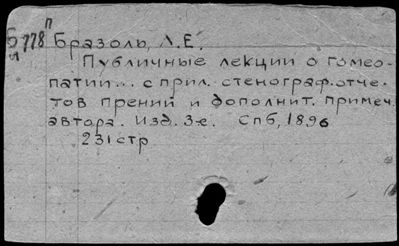 Б 778 П
л
Бразоль, Л.Е.
Публичные лекции о гомео-
патии... с прил. стенограф. отче-
тов прений и дополнит. примеч.
автора. Изд. 3-е. Спб, 1896
231 стр